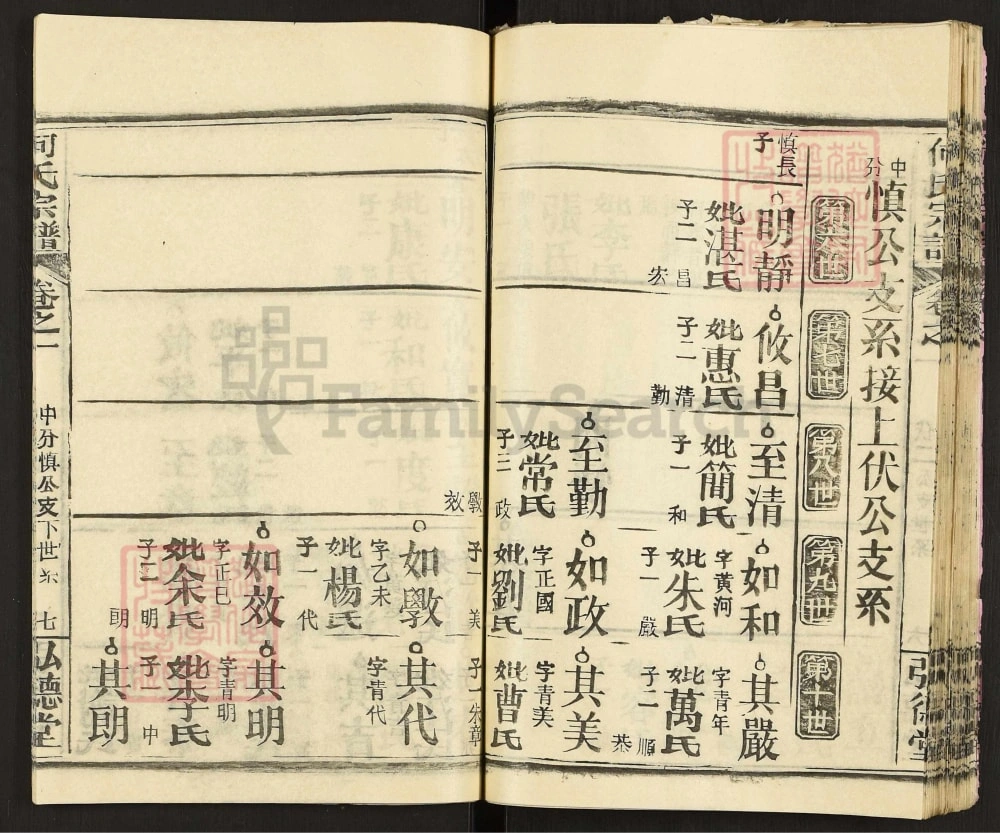 中分慎公支系接上伏公支系
第六世
第七世
第八世
第九世
第十世
慎長子
明靜
妣湛氏
子二 昌 宏
攸昌
妣惠氏
子二 清 勤
至清
妣簡氏
子一 和
如和
字黄河
妣朱氏
子一 嚴
其嚴
字青年
妣萬氏
子二 順 恭
至勤
妣常氏
子三 政 斆 效
如政
字正國
妣劉氏
子一 美
其美
字青美
妣曹氏
子一 朱章
如斆
字乙未
妣楊氏
子一 代
其代
字青代
如效
字正巳
妣余氏
子二 明 朗
其明
字青明
妣李氏
子一 中
其朗
何氏宗譜
卷之一
中分慎公支下世系
七
弘德堂
FamilySearch